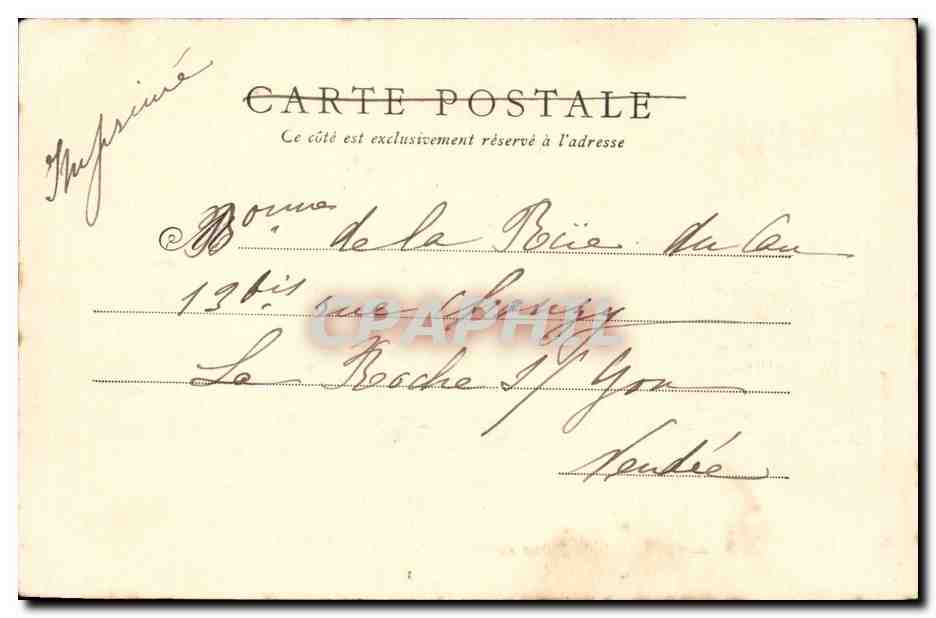 Imprimé
CARTE POSTALE
Ce côté est exclusivement réservé à l'adresse
Bonne de la Rüe du Can
13 bis rue Chanzy
CPAPHIL
La Roche s/ Yon
Vendée